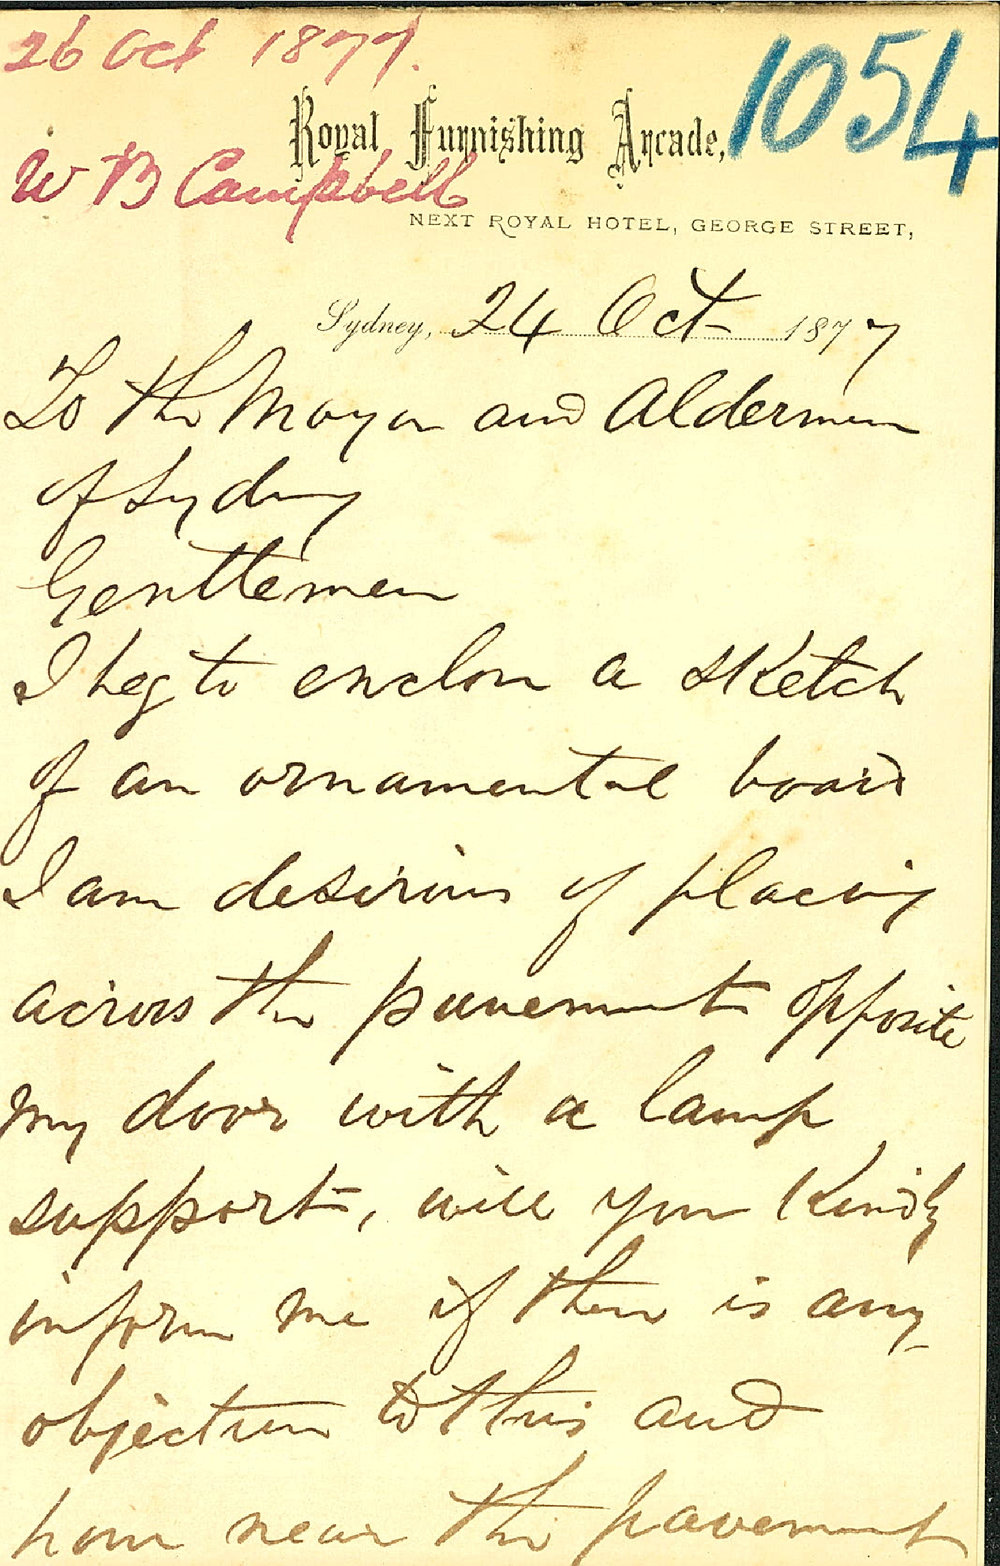 26 Oct 1877.
1054
Royal Furnishing Arcade,
W B Campbell
NEXT ROYAL HOTEL, GEORGE STREET,
Sydney, 24 Oct 1877
To the Mayor and Aldermen
of Sydney
Gentlemen
I beg to enclose a sketch
of an ornamental board
I am desirous of placing
across the pavement opposite
my door with a lamp
support, will you kindly
inform me if there is any
objection to this and
how near the pavement